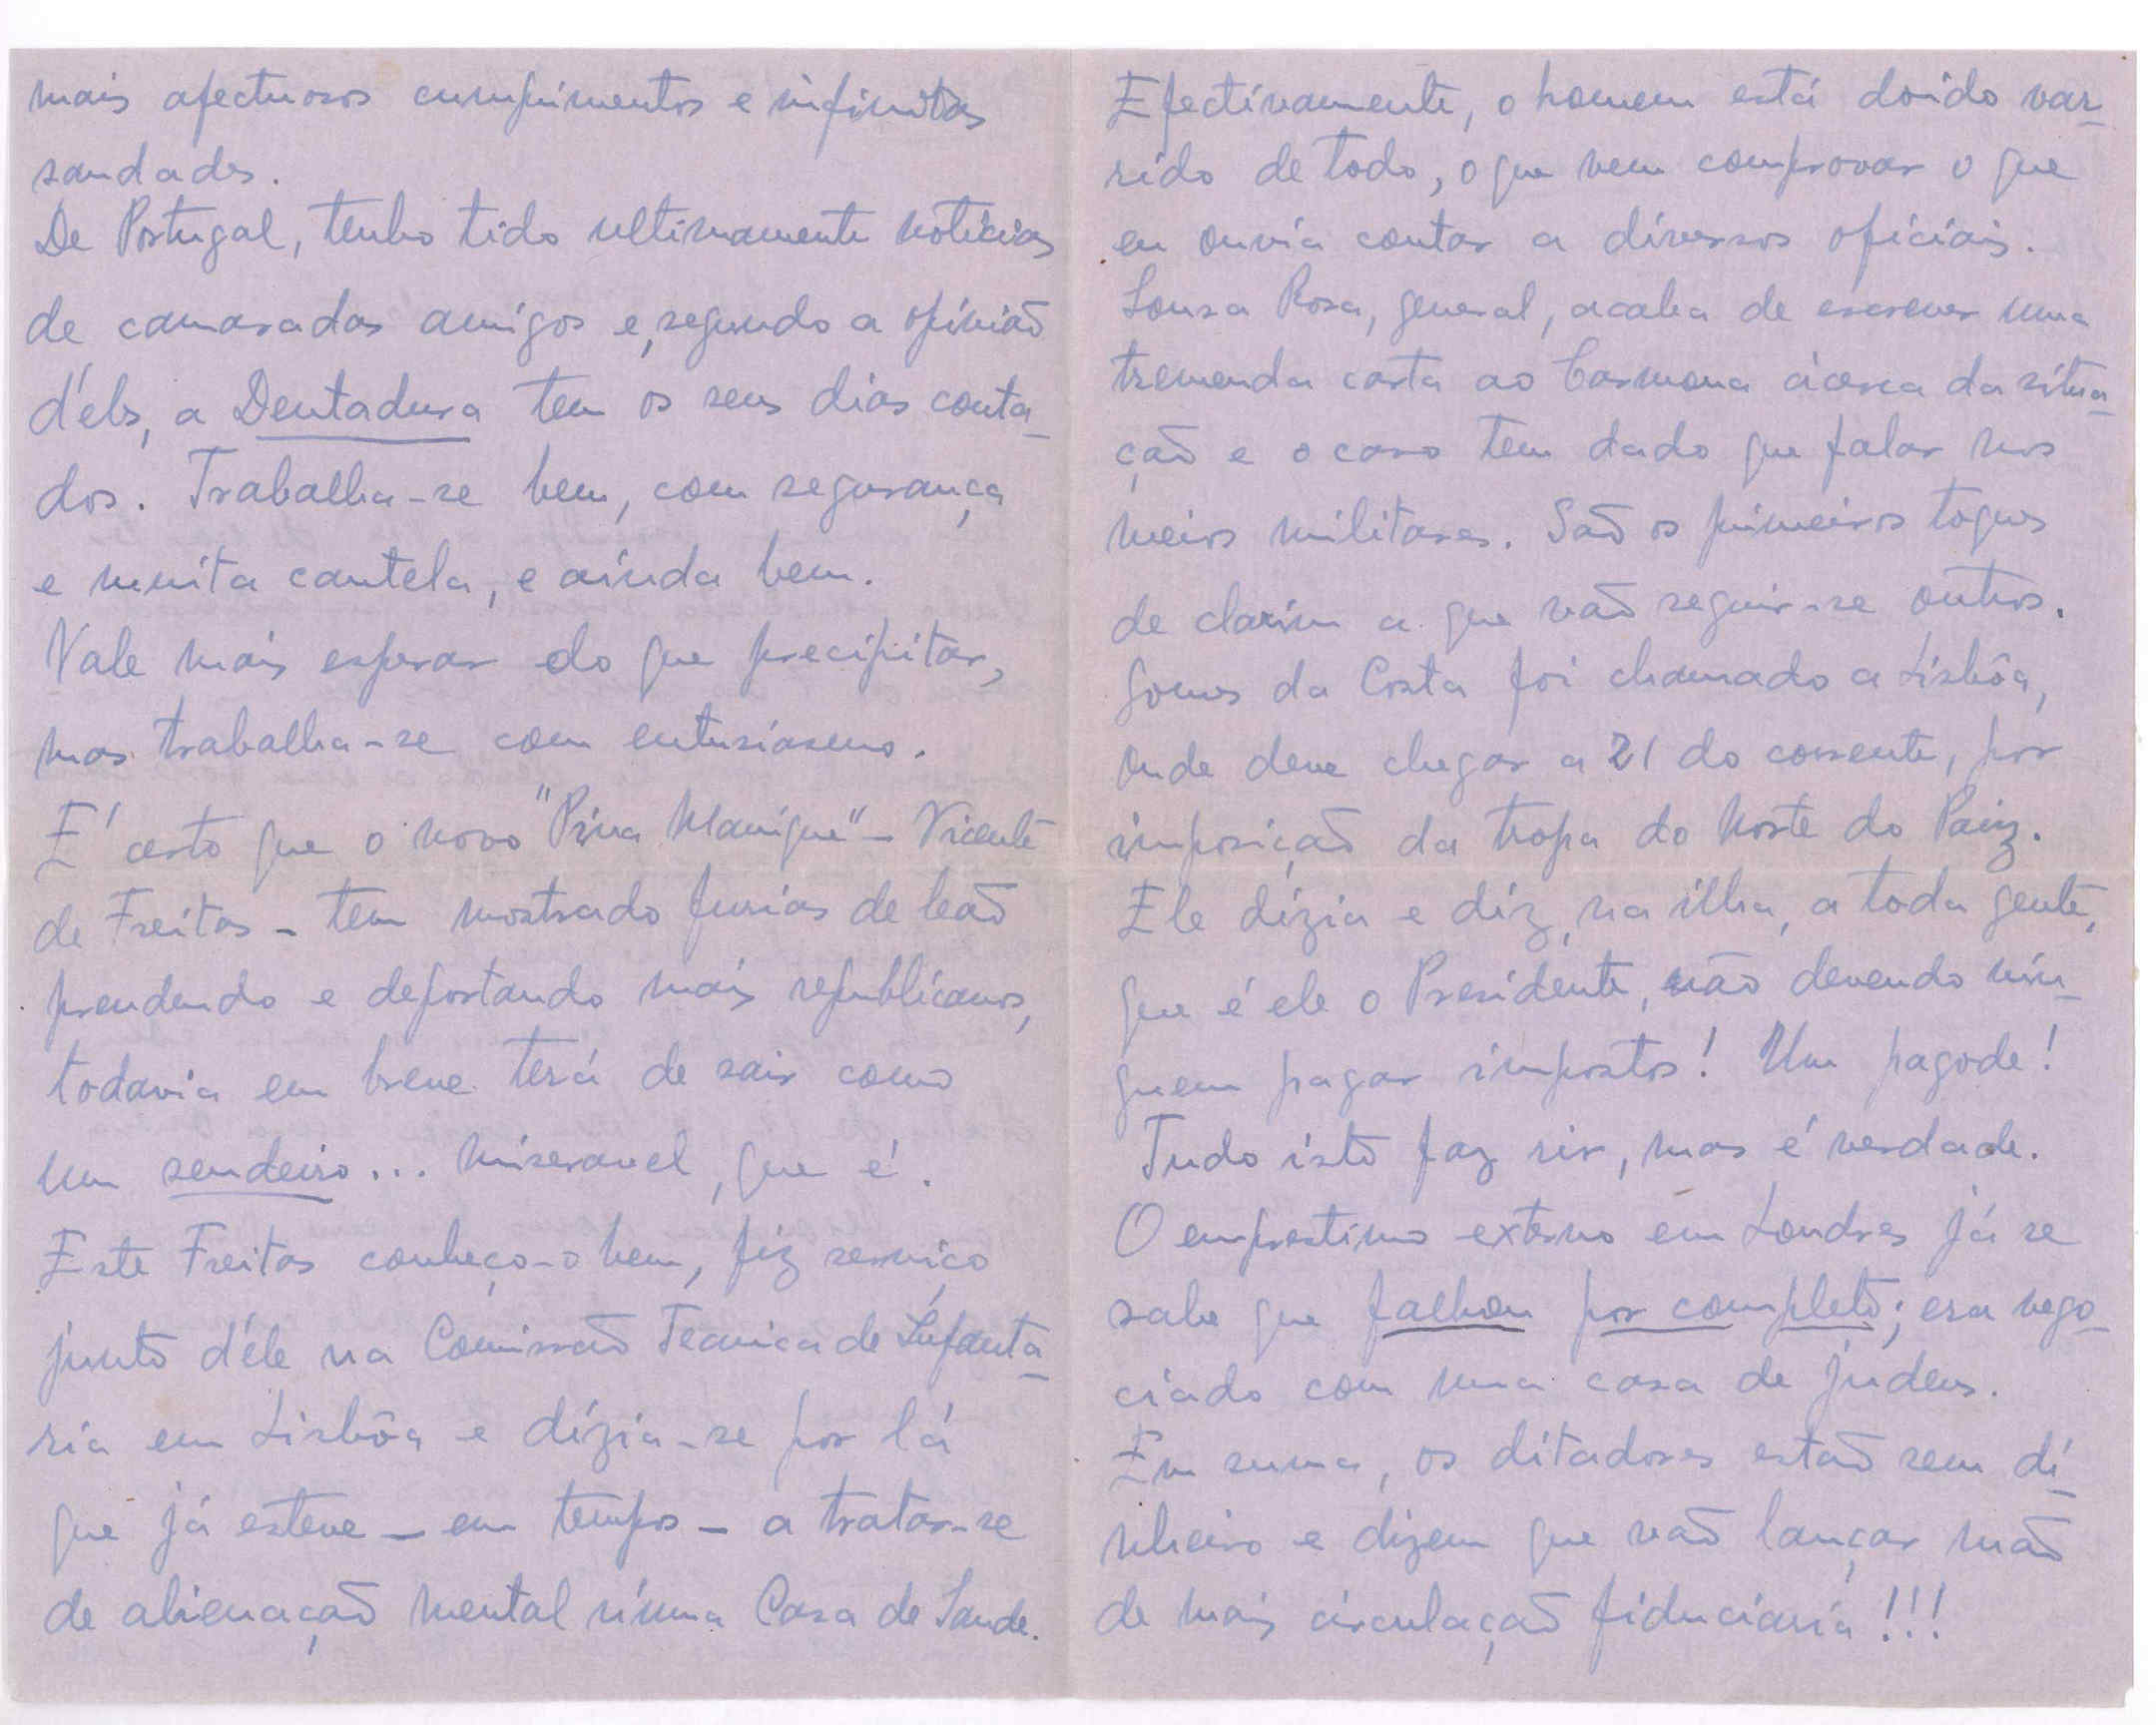 mais afectuosos cumprimentos e infinitas
saudades.
De Portugal, tenho tido ultimamente noticias
de camaradas amigos e, segundo a opinião
d'eles, a Dentadura tem os seus dias conta-
dos. Trabalha-se bem, com segurança
e muita cautela, e ainda bem.
Vale mais esperar do que precipitar,
mas trabalha-se com entusiasmo.
E' certo que o novo "Pina Manique" - Vicente
de Freitas - tem mostrado furias de leão
prendendo e deportando mais republicanos,
todavia em breve terá de sair como
um sendeiro... miseravel, que é.
Este Freitas conheço-o bem, fiz serviço
junto d'éle na Comissão Tecnica de Infanta-
ria em Lisbôa e dizia-se por lá
que já esteve - em tempos - a tratar-se
de alienação mental n'uma Casa de Saude.
Efectivamente, o homem está doido var-
rido de todo, o que vem comprovar o que
eu ouvia contar a diversos oficiais.
Sousa Rosa, general, acaba de escrever uma
tremenda carta ao Carmona ácerca da situa-
ção e o caso tem dado que falar nos
meios militares. São os primeiros toques
de clarim a que vão seguir-se outros.
Gomes da Costa foi chamado a Lisbôa,
onde deve chegar a 21 do corrente, por
imposição da tropa do Norte do Paiz.
Ele dizia e diz, na ilha, a toda gente,
que é ele o Presidente, não devendo nin-
guem pagar impostos! Um pagode!
Tudo isto faz rir, mas é verdade.
O emprestimo externo em Londres já se
sabe que falhou por completo; era nego-
ciado com uma casa de judeus.
Em suma, os ditadores estão sem di-
nheiro e dizem que vão lançar mão
de mais circulação fiduciaria!!!